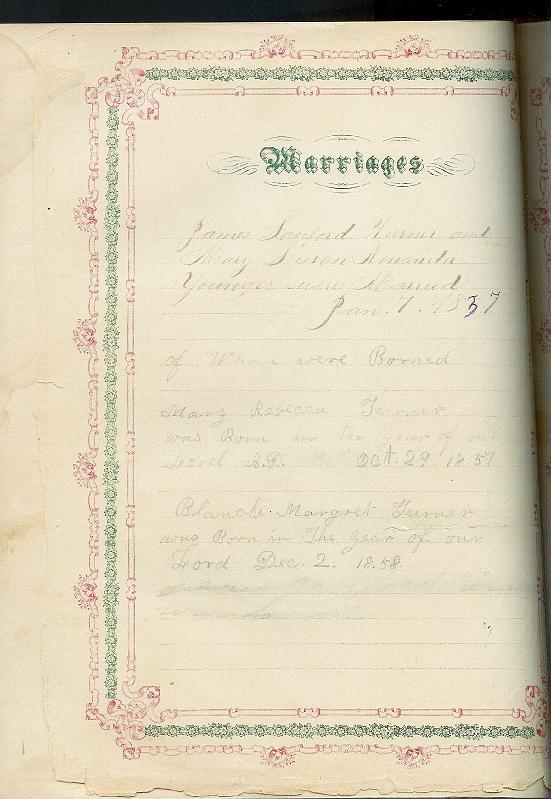 Marriages
James Sanford Turner and
Mary Susan Amanda
Younger were Married
Jan. 7. 1857
of Whom were Borned
Mary Rebecca Turner
was Born in the Year of our
Lord A.D. Oct. 29. 1857
Blanche Margret Turner
was Born in The year of our
Lord Dec. 2. 18.58.